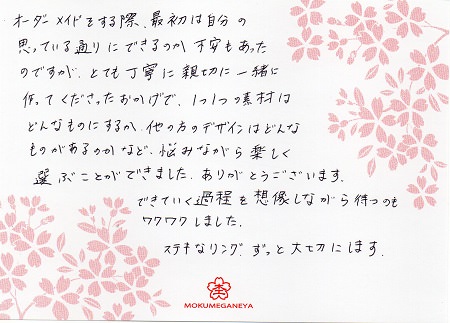 オーダーメイドをする際、最初は自分の
思っている通りにできるのか不安もあった
のですが、とても丁寧に親切に一緒に
作ってくださったおかげで、1つ1つの素材は
どんなものにするか、他の方のデザインはどんな
ものがあるのかなど、悩みながら楽しく
選ぶことができました。ありがとうございます。
できていく過程を想像しながら待つのも
ワクワクしました。
ステキなリング、ずっと大切にします。
MOKUMEGANEYA